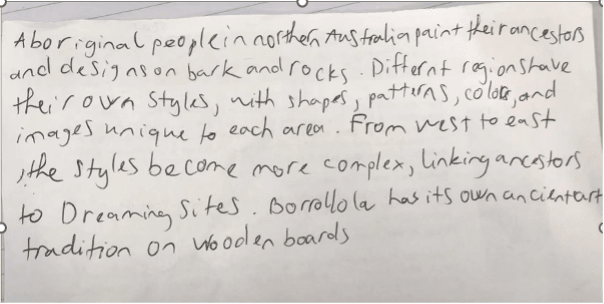 Aboriginal people in northern Australia paint their ancestors
and designs on bark and rocks. Differnt regions have
their own styles, with shapes, patterns, colors, and
images unique to each area. From west to east
, the styles become more complex, linking ancestors
to Dreaming Sites. Borrollola has its own ancient art
tradition on wooden boards